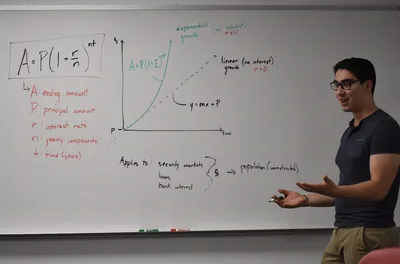 A = P(1 + r/n)^nt
A: ending amount
P: principal amount
r: interest rate
n: yearly compounds
t: time (years)
$
exponential growth (w/ interest)
A = P(1 + r/n)^nt
linear growth (no interest)
y = mx + P
P
time
Applies to: security markets
loans
bank interest
$ → population (unrestricted)